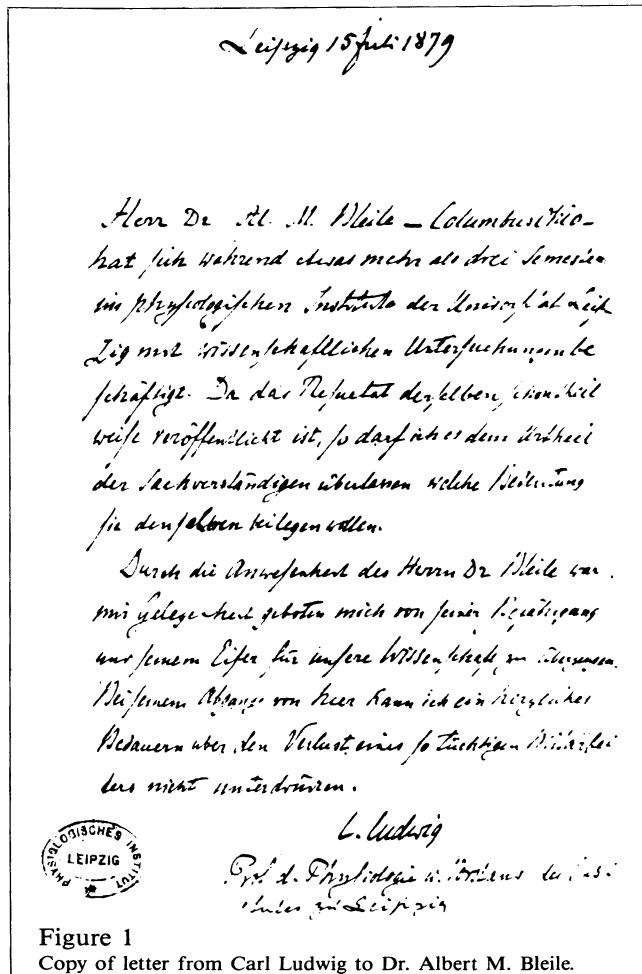 Leipzig 15 Juli 1879
Herr Dr Al. M. Bleile – Columbus Ohio –
hat sich während etwas mehr als drei Semester
im physiologischen Institute der Universität Leip
zig mit wissenschaftlichen Untersuchungen be
schäftigt. Da das Resultat derselben schon theil
weise veröffentlicht ist, so darf ich es dem Urtheil
der Sachverständigen überlassen welche Bedeutung
sie denselben beilegen wollen.
Durch die Anwesenheit des Herrn Dr Bleile war
mir Gelegenheit geboten mich von seiner Begabung
und seinem Eifer für unsere Wissenschaft zu überzeugen.
Bei seinem Abgange von hier kann ich ein herzliches
Bedauern über den Verlust eines so tüchtigen Mitarbei
ters nicht unterdrücken.
C. Ludwig
Prof d. Physiologie u. des
zu Leipzig
PHYSIOLOGISCHES INSTITUT
LEIPZIG
Figure 1
Copy of letter from Carl Ludwig to Dr. Albert M. Bleile.